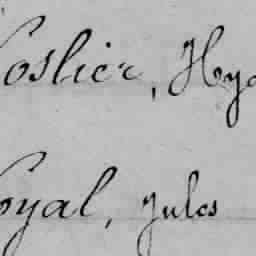 oslier, Hya
oyal, Jules